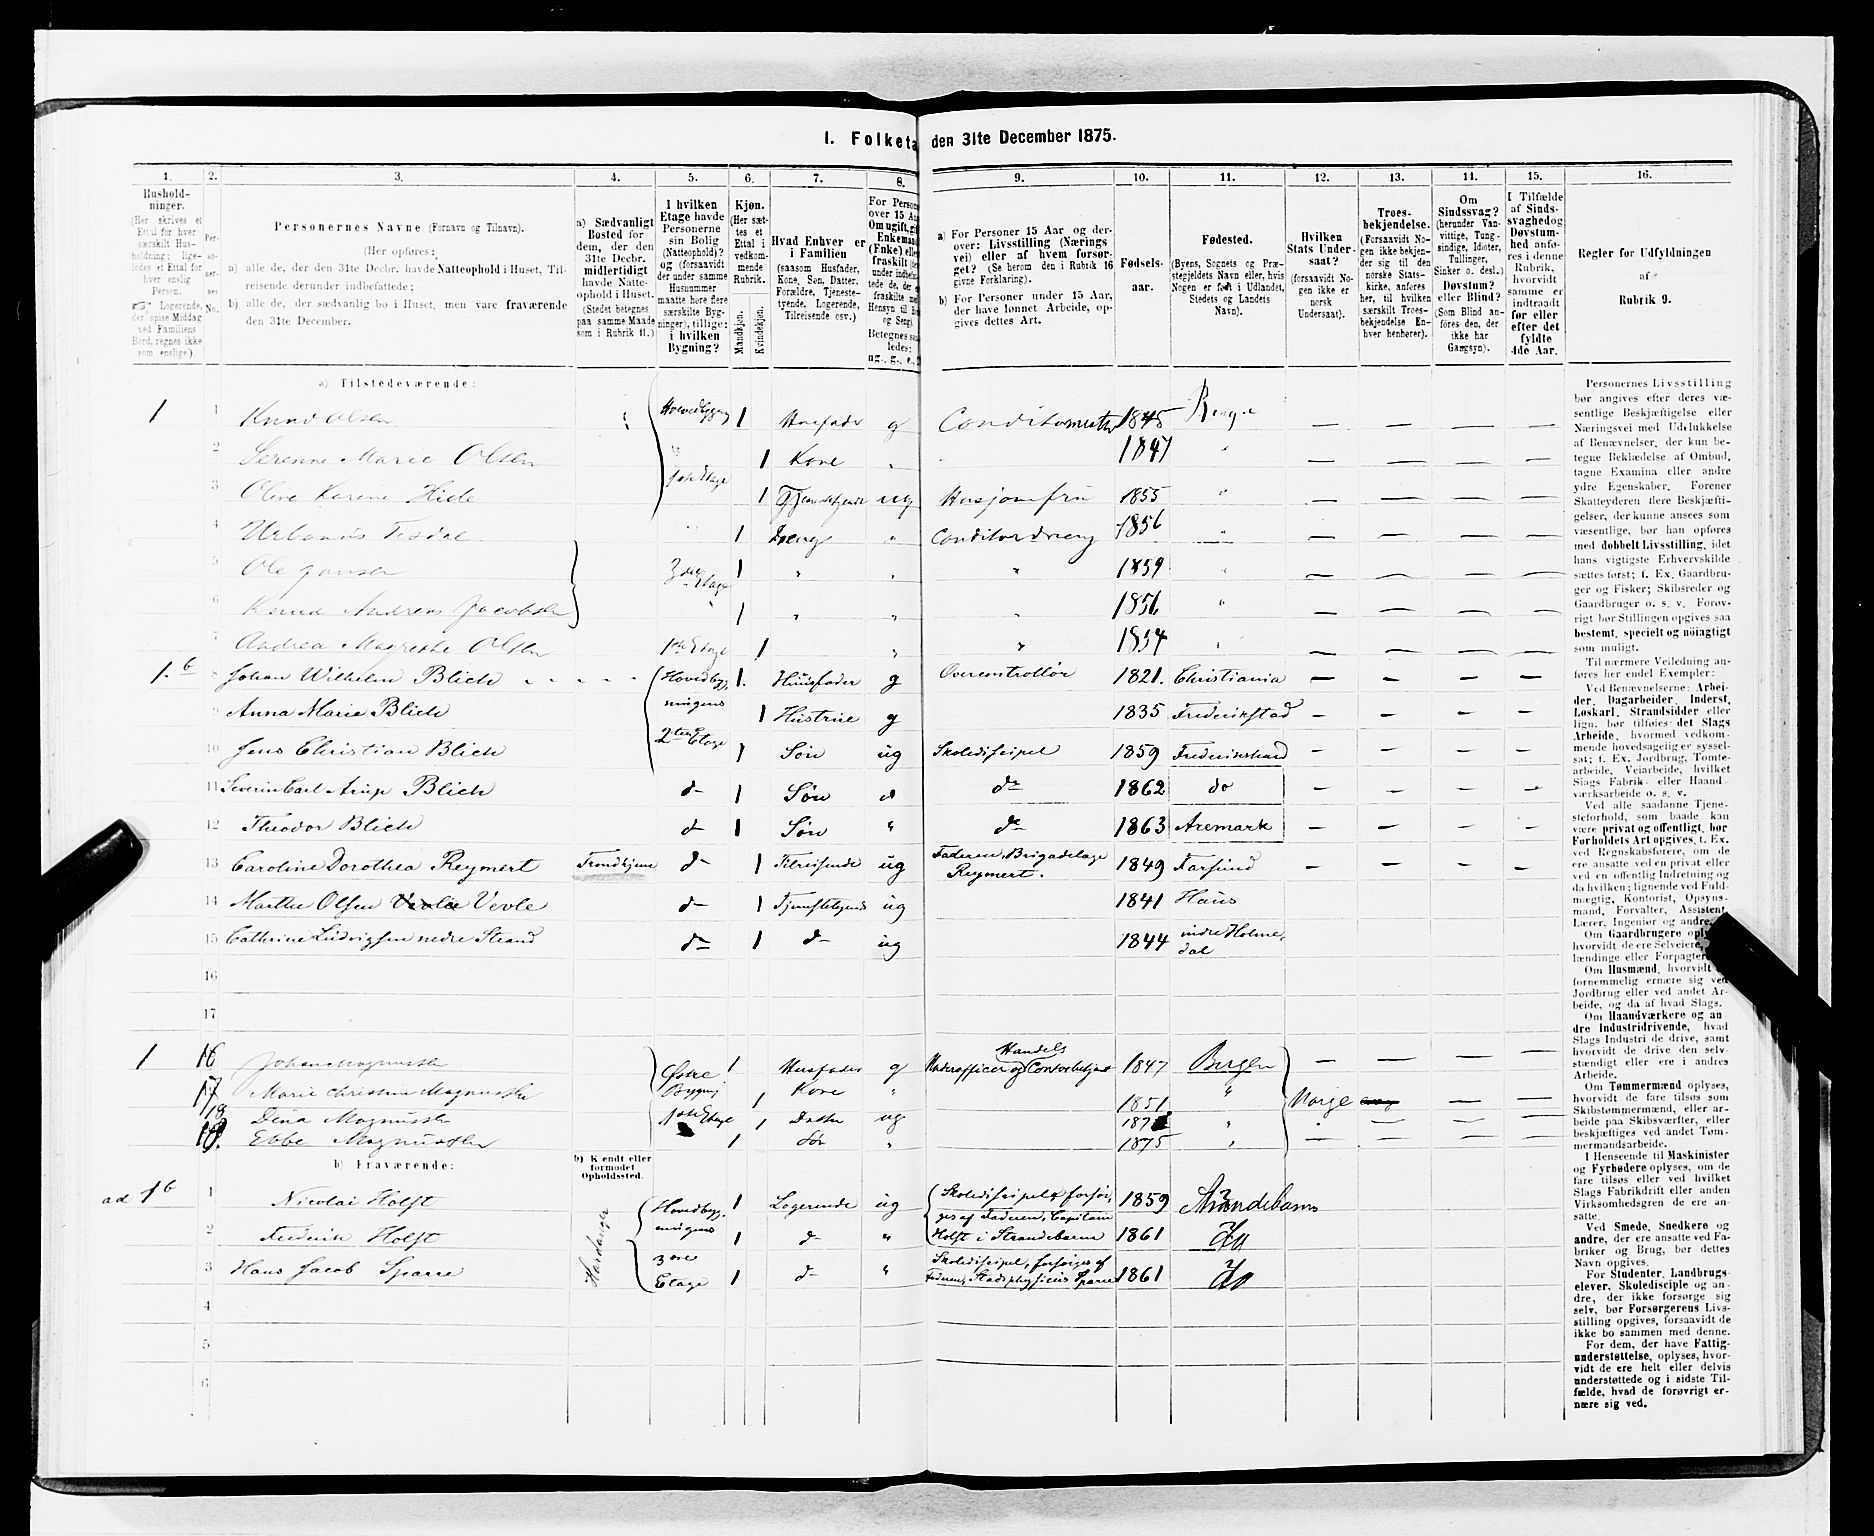 I. Folketæ den 31te December 1875.
1. 2. 3. 4. 5. 6. 7. 8. 9. 10. 11. 12. 13. 14. 15. 16.
Hushold-
ninger.
(Her skrives et
Ettal for hver
særskilt Hus-
holdning; lige-
ledes et Ettal for
hver enslig
Person.
☞ Logerende,
der spise Middag
ved Familiens
Bord, regnes ikke
som enslige).
Per-
so-
ner-
nes
No.
Personernes Navne (Fornavn og Tilnavn).
(Her opføres:
a) alle de, der den 31te Decbr. havde Natteophold i Huset, Til-
reisende derunder indbefattede;
b) alle de, der sædvanlig bo i Huset, men vare fraværende
den 31te December.
a) Sædvanligt
Bosted for
dem, der den
31te Decbr.
midlertidigt
havde Natte-
ophold i Huset.
(Stedet betegnes
paa samme Maade
som i Rubrik 11.)
I hvilken
Etage havde
Personerne
sin Bolig
(Natteophold)?
og (forsaavidt
der under samme
Husnummer
maatte høre flere
særskilte Byg-
ninger), tillige:
i hvilken
Bygning?
Kjøn.
(Her sæt-
tes et
Ettal i
vedkom-
mende
Rubrik.
Mandkjøn.
Kvindekjøn.
Hvad Enhver er
i Familien
(saasom Husfader,
Kone, Søn, Datter,
Forældre, Tjeneste-
tyende, Logerende,
Tilreisende osv.)
For Person
over 15 Aa
Om ugift, gif
Enkemand
(Enke) elle
fraskilt (der
under indbefat-
tede de, der
fraskilte med
Hensyn til Bo
og Seng).
Betegnes saa
ledes:
ug., g., e., f
a) For Personer 15 Aar og der-
over: Livsstilling (Nærings
vei) eller af hvem forsør-
get? (Se herom den i Rubrik 16
givne Forklaring).
b) For Personer under 15 Aar,
der have lønnet Arbeide, op-
gives dettes Art.
Fødsels-
aar.
Fødested.
(Byens, Sognets og Præ-
stegjeldets Navn eller, hvis
Nogen er født i Udlandet,
Stedets og Landets
Navn).
Hvilken
Stats Under-
saat?
(forsaavidt No-
gen ikke er
norsk
Undersaat).
Troes-
bekjendelse.
(Forsaavidt No-
gen ikke bekjen-
der sig til den
norske Stats-
kirke, anføres
her, til hvilken
særskilt Troes-
bekjendelse En-
hver henhører).
Om
Sindssvag?
(herunder Van-
vittige, Tung-
sindige, Idioter,
Tullinger,
Sinker o. desl.)
Døvstum?
eller Blind?
(Som Blind an-
føres den, der
ikke har
Gangsyn).
I Tilfælde
af Sinds-
svaghed og
Døvstum-
hed anfø-
res i denne
Rubrik,
hvorvidt
samme er
indtraadt
før eller
efter det
fyldte
4de Aar.
Regler for Udfyldningen
af
Rubrik 9.
a) Tilstedeværende:
1 1 Knud Olsen Hovedbygn 1 Husfader g Conditormester 1845 Bergen — — — —
2 Serenne Marie Olsen " 1 Kone " 1847 " — — — —
3 Oline Karine Hide 1ste Etage 1 Tjenestetyende ug Husjomfru 1855 " — — — —
4 Urbanus Tesdal 1 Dreng " Conditordreng 1856 " — — — —
5 Ole Jansen 3die Etage 1 " " " 1859 " — — — —
6 Knud Andreas Jacobsen " 1 " " " 1856 " — — — —
7 Andrea Magrethe Olsen 1ste Etage 1 " " 1854 " — — — —
1.b 8 Johan Wilhelm Blich Hovedbyg- 1. Huusfader g Overcontrollör 1821. Christiania — — — —
9 Anna Marie Blich ningens 1 Hustrue g 1835 Frederikstad — — — —
10 Jens Christian Blich 2den Etage 1 Sön ug Skoledisipel 1859 Frederikshald — — — —
11 Severin Carl Arup Blich d- 1 Sön d do 1862 do — — — —
12 Theodor Blich d- 1 Sön " do 1863 Aremark — — — —
13 Caroline Dorothea Reymert Trondhjem d- 1 Tilreisende ug Faderen, Brigadelæge
Reymert. 1849 Farsund — — —
14 Marthe Olsen Vevle d- 1 Tjenestetyende ug 1841 Haus
15 Cathrine Ludvigsen nedre Strand d- 1 d- ug 1844 indre Holme-
dal
16
17
1 16 Johan Magnussen Østre 1 Husfader g Underofficer og Handels Contorbetjent 1847 Bergen — — — —
17 Marie Christine Magnussen Bygning 1 Kone " 1851 " Norge — —
18 Dina Magnussen 1ste Etage 1 Datter ug 187 " — — —
19. Ebbe Magnussen 1 Sön " 1875 " — — —
b) Fraværende:
b) Kendt eller
formodet
Opholdssted.
ad 1b 1 Nicolai Holst Hardanger Hovedbyg- 1 Logerende ug Skoledisipel, forsör- 1859 Strandebarm
2 Frederik Holst ningens 1 d- " ges af Faderen, Capitain
Holst i Strandebarm 1861 Do
3 Hans Jacob Sparre 3die Etage 1 d- " Skoledisipel, forsörges af
Faderen, Stadsphysicus Sparre 1861 Do
4
5
6
Personernes Livsstilling
bør angives efter deres væ-
sentlige Beskjæftigelse eller
Næringsvei med Udelukkelse
af Benævnelser, der kun be-
tegne Beklædelse af Ombud,
tagne Examina eller andre
ydre Egenskaber. Forener
Skatteyderen flere Beskjæfti-
gelser, der kunne ansees som
væsentlige, bør han opføres
med dobbelt Livsstilling, idet
hans vigtigste Erhvervskilde
sættes først; f. Ex. Gaardbru-
ger og Fisker; Skibsreder og
Gaardbruger o. s. v. Forøv-
rigt bør Stillingen opgives saa
bestemt, specielt og nøiagtigt
som muligt.
Til nærmere Veiledning an-
føres her endel Exempler:
Ved Benævnelserne: Arbei-
der, Dagarbeider, Inderst,
Løskarl, Strandsidder eller
lign. bør tilføies det Slags
Arbeide, hvormed vedkom-
mende hovedsagelig er syssel-
sat; f. Ex. Jordbrug, Tomte-
arbeide, Veiarbeide, hvilket
Slags Fabrik- eller Haand-
værksarbeide o. s. v.
Ved alle saadanne Tjene-
steforhold, som baade kan
være privat og offentligt, bør
Forholdets Art opgives, f. Ex.
ved Regnskabsførere, om de
ere ansatte ved en privat eller
ved en offentlig Indretning og
da hvilken; lignende ved Fuld-
mægtig, Kontorist, Opsyns-
mand, Forvalter, Assistent,
Lærer, Ingeniør og andre.
Om Gaardbrugere oply
hvorvidt de ere Selveiere,
lændinge eller Forpagter
Om Husmænd, hvorvidt
fornemmelig ernære sig ved
Jordbrug eller ved andet Ar-
beide, og da af hvad Slags.
Om Haandværkere og an
dre Industridrivende, hvad
Slags Industri de drive, samt
hvorvidt de drive den selv-
stændigt eller ere i andres
Arbeide.
Om Tømmermænd oplyses,
hvorvidt de fare tilsøs som
Skibstømmermænd, eller ar-
beide paa Skibsværfter, eller
beskjæftiges ved andet Tøm-
mermandsarbeide.
I Henseende til Maskinister
og Fyrbødere oplyses, om de
fare tilsøs eller ved hvilket
Slags Fabrikdrift eller anden
Virksomhedsgren de ere an-
satte.
Ved Smede, Snedkere og
andre, der ere ansatte ved Fa-
briker og Brug, bør dettes
Navn opgives.
For Studenter, Landbrugs-
elever, Skoledisciple og an-
dre, der ikke forsørge sig
selv, bør Forsørgerens Livs-
stilling opgives, forsaavidt de
ikke bo sammen med denne.
For dem, der have Fattig-
understøttelse, oplyses, hvor-
vidt de ere helt eller delvis
understøttede og i sidste Til-
fælde, hvad de forøvrigt er-
nære sig ved.